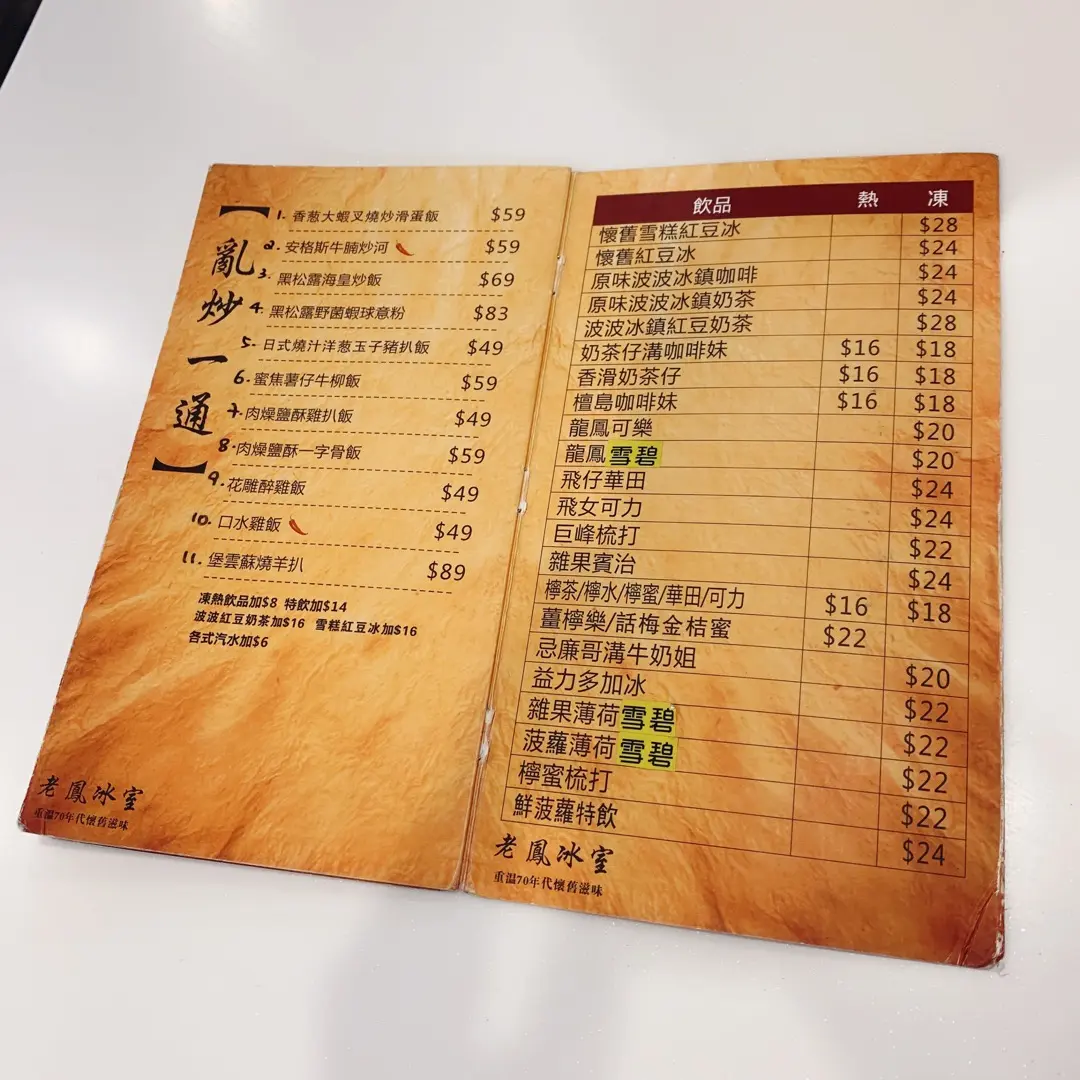 【亂炒一通】
1. 香葱大蝦叉燒炒滑蛋飯 $59
2. 安格斯牛腩炒河 $59
3. 黑松露海皇炒飯 $69
4. 黑松露野菌蝦球意粉 $83
5. 日式燒汁洋葱玉子豬扒飯 $49
6. 蜜焦薯仔牛柳飯 $59
7. 肉燥鹽酥雞扒飯 $49
8. 肉燥鹽酥一字骨飯 $59
9. 花雕醉雞飯 $49
10. 口水雞飯 $49
11. 堡雲蘇燒羊扒 $89
凍熱飲品加$8 特飲加$14
波波紅豆奶茶加$16 雪糕紅豆冰加$16
各式汽水加$6
老鳳冰室
重溫70年代懷舊滋味
飲品 熱 凍
懷舊雪糕紅豆冰 $28
懷舊紅豆冰 $24
原味波波冰鎮咖啡 $24
原味波波冰鎮奶茶 $24
波波冰鎮紅豆奶茶 $28
奶茶仔溝咖啡妹 $16 $18
香滑奶茶仔 $16 $18
檀島咖啡妹 $16 $18
龍鳳可樂 $20
龍鳳雪碧 $20
飛仔華田 $24
飛女可力 $24
巨峰梳打 $22
雜果賓治 $24
檸茶/檸水/檸蜜/華田/可力 $16 $18
薑檸樂/話梅金桔蜜 $22
忌廉哥溝牛奶姐 $20
益力多加冰 $22
雜果薄荷雪碧 $22
菠蘿薄荷雪碧 $22
檸蜜梳打 $22
鮮菠蘿特飲 $24
老鳳冰室
重溫70年代懷舊滋味